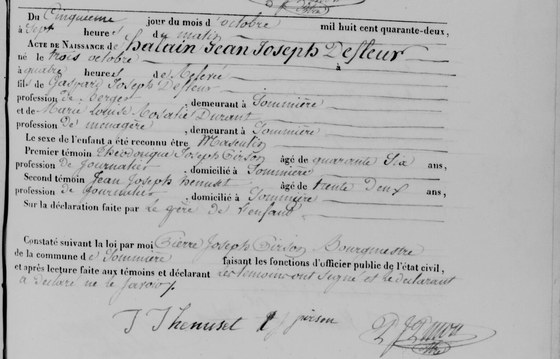 Du Cinquieme jour du mois d'octobre mil huit cent quarante-deux,
à Sept heures du matin
ACTE DE NAISSANCE de halain Jean Joseph Defleur
né le trois octobre à
à quatre heures de relevée
fils de Gaspard Joseph Defleur
profession de berger, demeurant à Sommière
et de Marie Louise Rosalie Durant
profession de menagère, demeurant à Sommière
Le sexe de l'enfant a été reconnu être Masculin
Premier témoin Theodorique Joseph Pirson âgé de quarante Six ans,
profession de Journalier, domicilié à Sommière
Second témoin Jean Joseph henuset âgé de trente Deux ans,
profession de Journalier, domicilié à Sommière
Sur la déclaration faite par Le père de l'enfant
Constaté suivant la loi par moi Pierre Joseph Pirson Bourgmestre
de la commune de Sommière faisant les fonctions d'officier public de l'état civil,
et après lecture faite aux témoins et déclarant Les temoins ont Signé et le declarant
a declaré ne le Savoir
J J henuset pirson